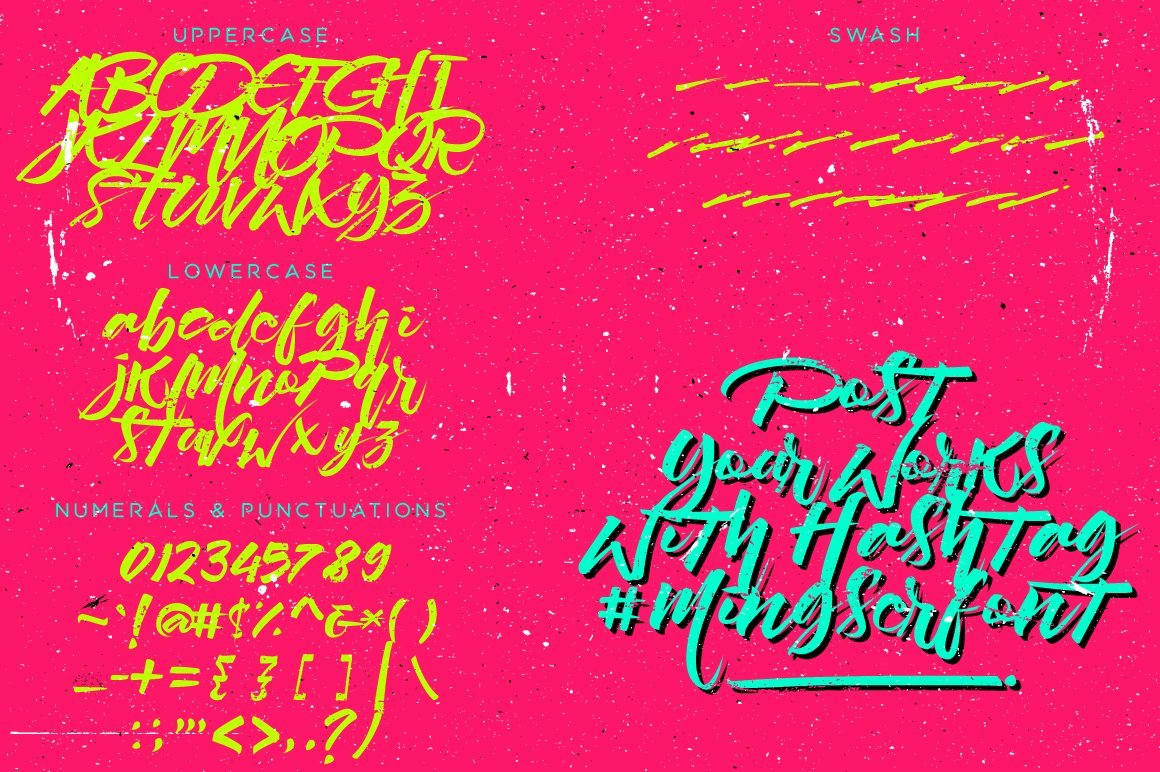 UPPERCASE
ABCDEFGHI
JKLMNOPQR
STUVWXYZ
LOWERCASE
abcdefghi
jklmnopqr
stuvwxyz
NUMERALS & PUNCTUATIONS
012345789
~`!@#$%^&*()
_-+={}[]|\
:;"'<>,.?/
SWASH
Post
your works
with Hashtag
#mingscrfont